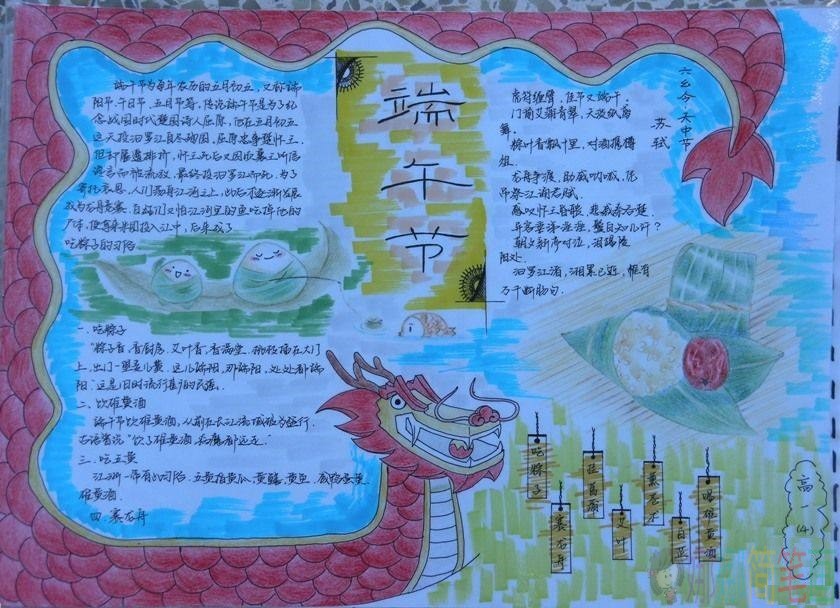 端午节为每年农历的五月初五，又称端
阳节、午日节、五月节等，传说端午节是为了纪
念战国时代楚国诗人屈原，他在五月初五
这天投汨罗江自尽殉国，屈原忠事楚怀王，
但却屡遭排挤，怀王死后又因顷襄王听信
谗言而被流放，最终投汨罗江而死。为了
寄托哀思，人们荡舟江河之上，此后才逐渐发展
成为龙舟竞赛。百姓们又怕江河里的鱼吃掉他的
身体，便将米团投入江中，后来成了
吃粽子的习俗
端
午
节
虎符缠臂，佳节又端午。
门前艾蒲青翠，天淡纸鸢
舞。
粽叶香飘十里，对酒携樽
俎。
龙舟争渡，助威呐喊，凭
吊祭江诵君赋。
感叹怀王昏聩，悲戚秦吞楚。
异客垂涕淫淫，鬓白知几许？
朝夕新亭对泣，泪竭陵
阳处。
汨罗江渚，湘累已逝，惟有
万千断肠句。
六幺令·天中节
苏轼
一、吃粽子
“粽子香，香厨房。艾叶香，香满堂。桃枝插在大门
上，出门一望麦儿黄。这儿端阳，那儿端阳，处处都端
阳。”这是旧时流行甚广的民谣。
二、饮雄黄酒
端午节饮雄黄酒，从前在长江流域极为盛行。
古语曾说“饮了雄黄酒，病魔都远走。”
三、吃五黄
江浙一带有的习俗。五黄指黄瓜、黄鳝、黄鱼、咸鸭蛋黄、
雄黄酒。
四、赛龙舟
吃粽子
赛龙舟
挂菖蒲
艾叶
薰苍术
白芷
喝雄黄酒
高一(4)
简笔